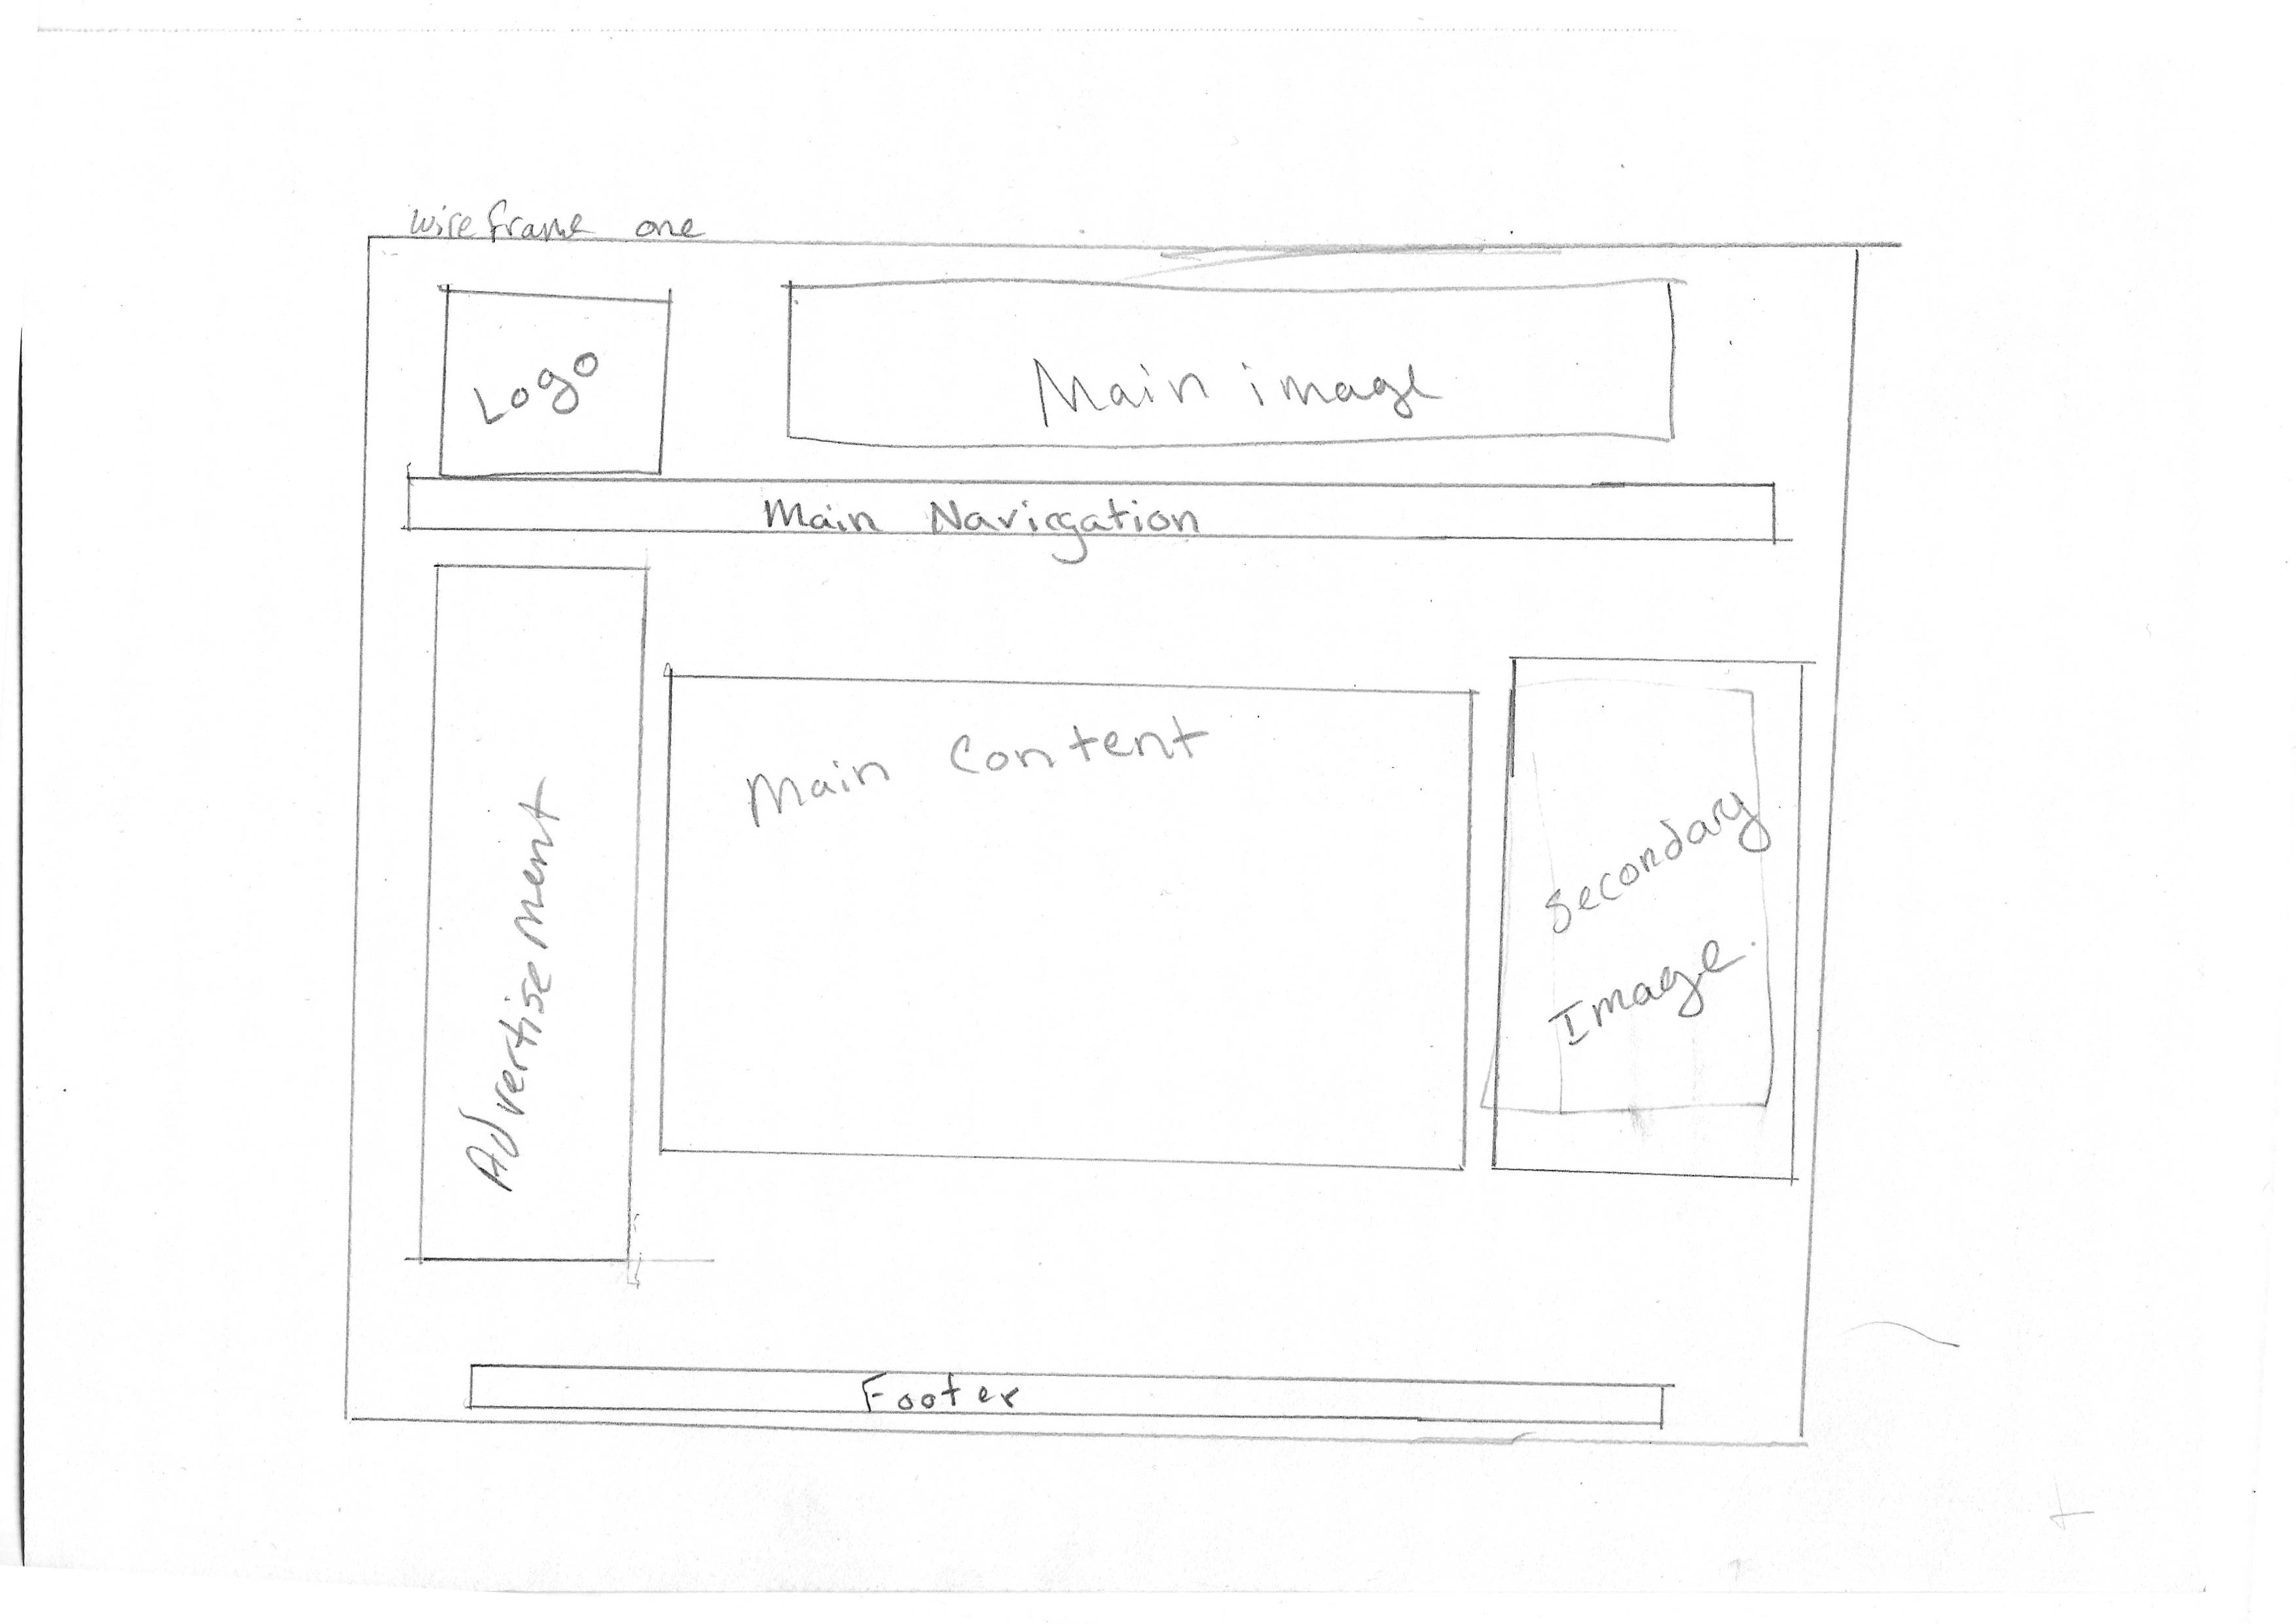 wireframe one
Logo
Main image
Main Navigation
Advertisement
Main Content
Secondary
Image
Footer